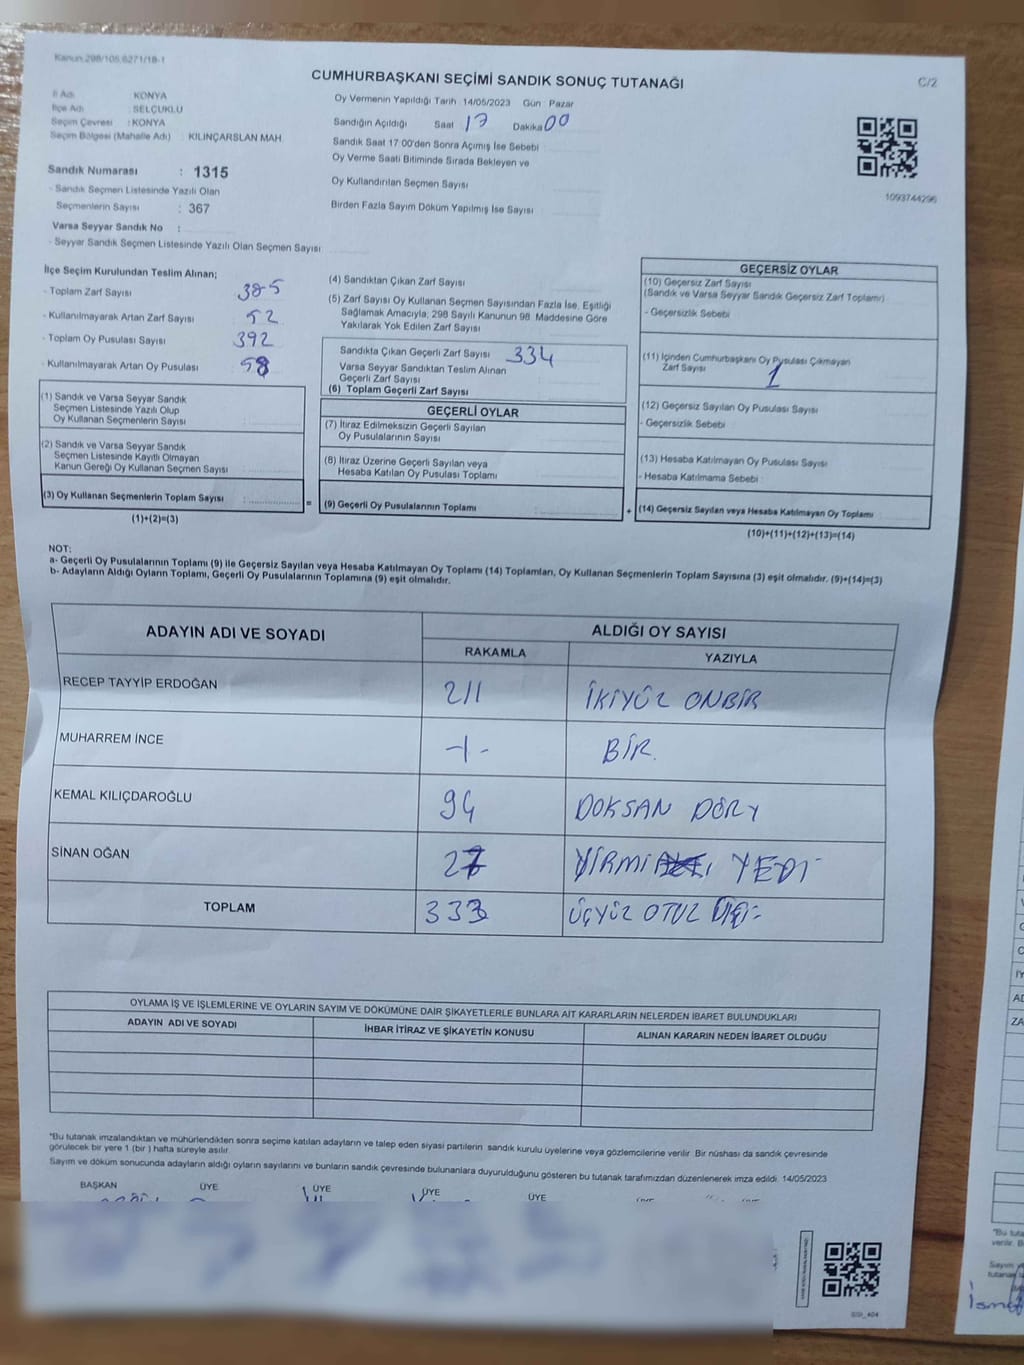 Kanun:298/105,6271/18-1
CUMHURBAŞKANI SEÇİMİ SANDIK SONUÇ TUTANAĞI
C/2
İl Adı : KONYA
İlçe Adı : SELÇUKLU
Seçim Çevresi : KONYA
Seçim Bölgesi (Mahalle Adı) : KILINÇARSLAN MAH.
Sandık Numarası : 1315
- Sandık Seçmen Listesinde Yazılı Olan
Seçmenlerin Sayısı : 367
Varsa Seyyar Sandık No :
- Seyyar Sandık Seçmen Listesinde Yazılı Olan Seçmen Sayısı
Oy Vermenin Yapıldığı Tarih 14/05/2023 Gün : Pazar
Sandığın Açıldığı Saat 17 Dakika 00
Sandık Saat 17:00'den Sonra Açımış İse Sebebi
Oy Verme Saati Bitiminde Sırada Bekleyen ve
Oy Kullandırılan Seçmen Sayısı
Birden Fazla Sayım Döküm Yapılmış İse Sayısı
1093744296
İlçe Seçim Kurulundan Teslim Alınan;
- Toplam Zarf Sayısı 385
- Kullanılmayarak Artan Zarf Sayısı 52
- Toplam Oy Pusulası Sayısı 392
- Kullanılmayarak Artan Oy Pusulası 58
(1) Sandık ve Varsa Seyyar Sandık
Seçmen Listesinde Yazılı Olup
Oy Kullanan Seçmenlerin Sayısı :
(2) Sandık ve Varsa Seyyar Sandık
Seçmen Listesinde Kayıtlı Olmayan
Kanun Gereği Oy Kullanan Seçmen Sayısı :
(3) Oy Kullanan Seçmenlerin Toplam Sayısı : =
(1)+(2)=(3)
(4) Sandıktan Çıkan Zarf Sayısı
(5) Zarf Sayısı Oy Kullanan Seçmen Sayısından Fazla İse, Eşitliği
Sağlamak Amacıyla; 298 Sayılı Kanunun 98. Maddesine Göre
Yakılarak Yok Edilen Zarf Sayısı
Sandıkta Çıkan Geçerli Zarf Sayısı 334
Varsa Seyyar Sandıktan Teslim Alınan
Geçerli Zarf Sayısı
(6) Toplam Geçerli Zarf Sayısı
GEÇERLİ OYLAR
(7) İtiraz Edilmeksizin Geçerli Sayılan
Oy Pusulalarının Sayısı
(8) İtiraz Üzerine Geçerli Sayılan veya
Hesaba Katılan Oy Pusulası Toplamı
(9) Geçerli Oy Pusulalarının Toplamı +
GEÇERSİZ OYLAR
(10) Geçersiz Zarf Sayısı
(Sandık ve Varsa Seyyar Sandık Geçersiz Zarf Toplamı)
- Geçersizlik Sebebi
(11) İçinden Cumhurbaşkanı Oy Pusulası Çıkmayan
Zarf Sayısı 1
(12) Geçersiz Sayılan Oy Pusulası Sayısı
- Geçersizlik Sebebi
(13) Hesaba Katılmayan Oy Pusulası Sayısı
- Hesaba Katılmama Sebebi :
(14) Geçersiz Sayılan veya Hesaba Katılmayan Oy Toplamı
(10)+(11)+(12)+(13)=(14)
NOT:
a- Geçerli Oy Pusulalarının Toplamı (9) ile Geçersiz Sayılan veya Hesaba Katılmayan Oy Toplamı (14) Toplamları, Oy Kullanan Seçmenlerin Toplam Sayısına (3) eşit olmalıdır. (9)+(14)=(3)
b- Adayların Aldığı Oyların Toplamı, Geçerli Oy Pusulalarının Toplamına (9) eşit olmalıdır.
ADAYIN ADI VE SOYADI
ALDIĞI OY SAYISI
RAKAMLA YAZIYLA
RECEP TAYYİP ERDOĞAN 211 İKİYÜZ ONBİR
MUHARREM İNCE -1- BİR.
KEMAL KILIÇDAROĞLU 94 DOKSAN DÖRT
SİNAN OĞAN 27 YİRMİ YEDİ
TOPLAM 333 ÜÇYÜZ OTUZ
OYLAMA İŞ VE İŞLEMLERİNE VE OYLARIN SAYIM VE DÖKÜMÜNE DAİR ŞİKAYETLERLE BUNLARA AİT KARARLARIN NELERDEN İBARET BULUNDUKLARI
ADAYIN ADI VE SOYADI İHBAR İTİRAZ VE ŞİKAYETİN KONUSU ALINAN KARARIN NEDEN İBARET OLDUĞU
*Bu tutanak imzalandıktan ve mühürlendikten sonra seçime katılan adayların ve talep eden siyasi partilerin sandık kurulu üyelerine veya gözlemcilerine verilir. Bir nüshası da sandık çevresinde
görülecek bir yere 1 (bir) hafta süreyle asılır.
Sayım ve döküm sonucunda adayların aldığı oyların sayılarını ve bunların sandık çevresinde bulunanlara duyurulduğunu gösteren bu tutanak tarafımızdan düzenlenerek imza edildi. 14/05/2023
BAŞKAN ÜYE ÜYE ÜYE ÜYE